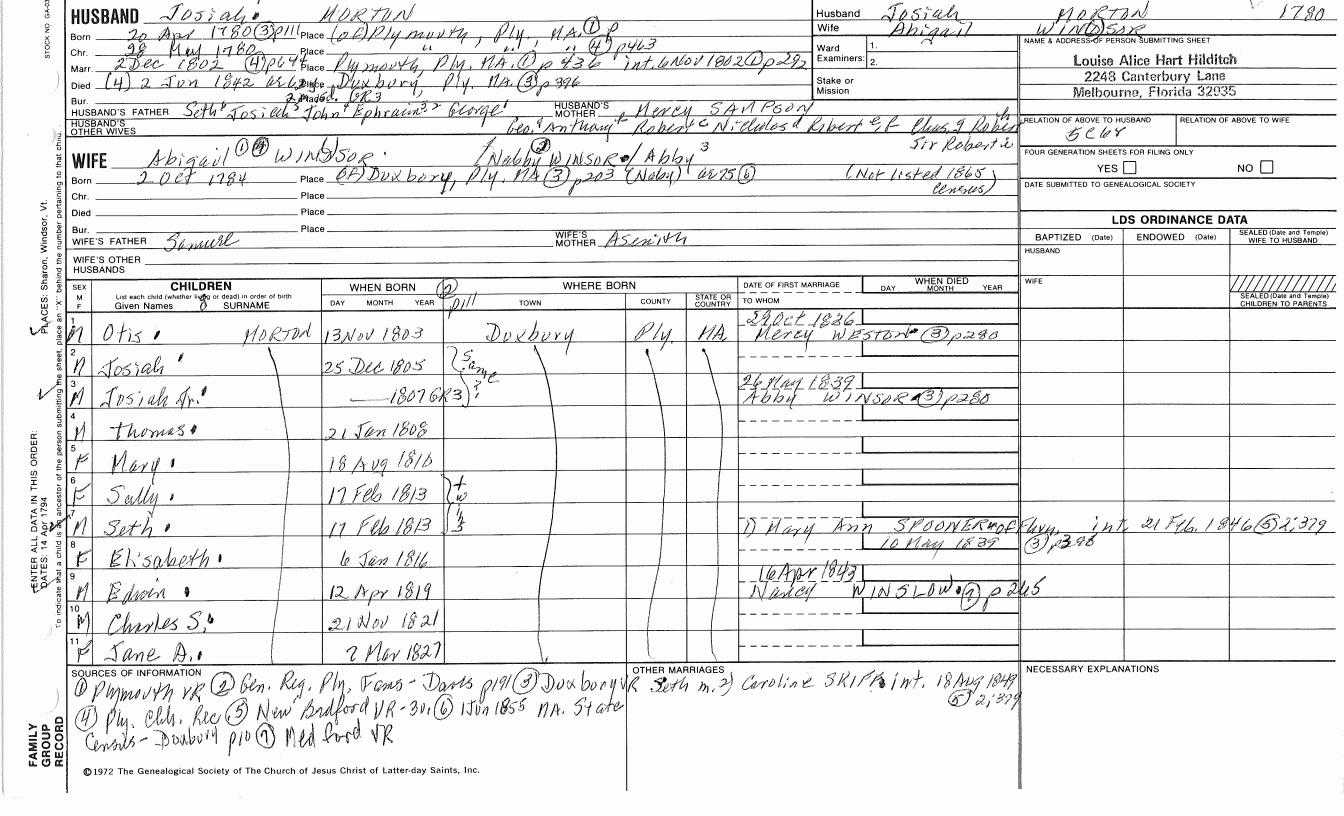 HUSBAND Josiah MORTON
Born 20 Apr 1780 (3) p111 Place (of) Plymouth, Ply, MA. (1) p
Chr. 28 May 1780 Place " " " (4) p463
Marr. 2 Dec 1802 (4) p644 Place Plymouth, Ply. MA. (1) p 436 int. 6 Nov 1802 (1) p 292
Died (4) 2 Jun 1842 Place Duxbury, Ply. MA. (3) p 396
Bur. Place GR3
HUSBAND'S FATHER Seth Josiah John Ephraim George HUSBAND'S MOTHER Mercy SAMPSON
HUSBAND'S OTHER WIVES Geo. Anthony Robert Nicholas Robert
Sir Robert
WIFE Abigail WINDSOR (Nabby WINSOR / Abby 3
Born 2 Oct 1784 Place (of) Duxbury, Ply. MA (3) p203 (Naby) ae 75 (6) (Not listed 1865 census)
Chr. Place
Died Place
Bur. Place
WIFE'S FATHER Samuel WIFE'S MOTHER Asenith
WIFE'S OTHER HUSBANDS
Husband Josiah MORTON 1780
Wife Abigail WINDSOR
Ward 1.
Examiners: 2.
Stake or Mission
NAME & ADDRESS OF PERSON SUBMITTING SHEET
Louise Alice Hart Hilditch
2248 Canterbury Lane
Melbourne, Florida 32935
RELATION OF ABOVE TO HUSBAND RELATION OF ABOVE TO WIFE
5C6r
FOUR GENERATION SHEETS FOR FILING ONLY
YES NO
DATE SUBMITTED TO GENEALOGICAL SOCIETY
LDS ORDINANCE DATA
BAPTIZED (Date) ENDOWED (Date) SEALED (Date and Temple) WIFE TO HUSBAND
HUSBAND
WIFE
SEALED (Date and Temple) CHILDREN TO PARENTS
SEX M F
CHILDREN
List each child (whether living or dead) in order of birth
Given Names SURNAME
WHEN BORN
DAY MONTH YEAR
(2) p111
WHERE BORN
TOWN COUNTY STATE OR COUNTRY
DATE OF FIRST MARRIAGE
TO WHOM
WHEN DIED
DAY MONTH YEAR
1 M Otis MORTON 13 Nov 1803 Duxbury Ply. MA 29 Oct 1826
Mercy WESTON (3) p280
2 M Josiah 25 Dec 1805 (Same
3 M Josiah Jr. 1807 GR3 )? 26 May 1839
Abby WINSOR (3) p280
4 M Thomas 21 Jan 1808
5 F Mary 18 Aug 1810
6 F Sally 17 Feb 1813 twins
7 M Seth 17 Feb 1813 1) Mary Ann SPOONER of Fhvn, int. 21 Feb. 1846 (5) 2;379
8 F Elisabeth 6 Jan 1816 10 May 1839 (3) p396
9 M Edwin 12 Apr 1819 16 Apr 1843
Nancy WINSLOW (7) p 265
10 M Charles S. 21 Nov 1821
11 F Jane A. 7 Mar 1827
SOURCES OF INFORMATION
(1) Plymouth VR (2) Gen. Reg. Ply. Fams - Davis p191 (3) Duxbury VR
(4) Ply. Chh. Rec (5) New Bedford VR - 3v. (6) 1 Jun 1855 MA. State
Census - Duxbury p10 (7) Medford VR
OTHER MARRIAGES
Seth m. 2) Caroline SKIFF int. 18 Aug 1849
(5) 2;379
NECESSARY EXPLANATIONS
©1972 The Genealogical Society of The Church of Jesus Christ of Latter-day Saints, Inc.
FAMILY GROUP RECORD
ENTER ALL DATA IN THIS ORDER:
DATES: 14 Apr 1794
PLACES: Sharon, Windsor, Vt.
To indicate that a child is an ancestor of the person submitting the sheet, place an "X" behind the number pertaining to that child.